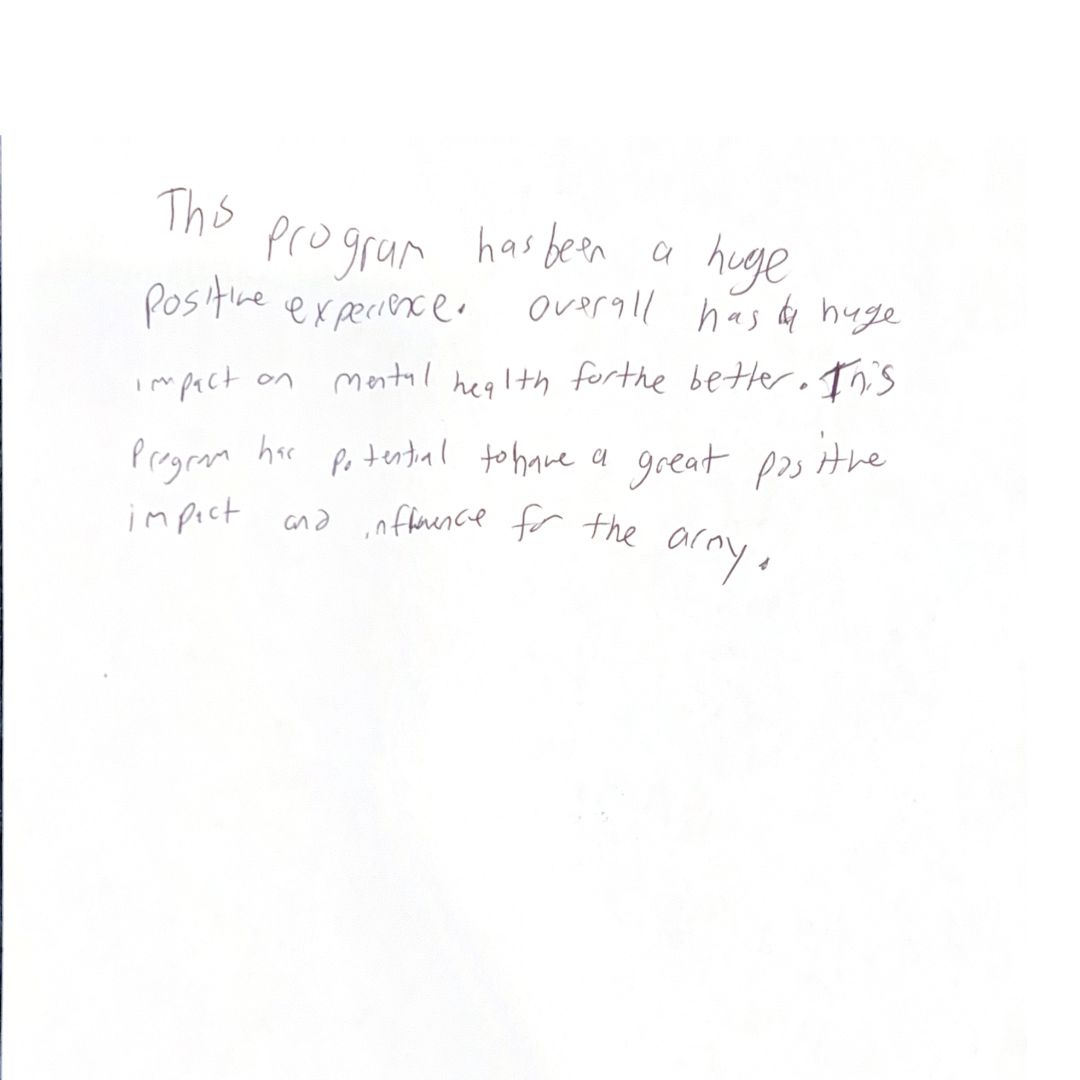 This program has been a huge
positive experience. overall has a huge
impact on mental health for the better. This
program has potential to have a great positive
impact and influence for the army.